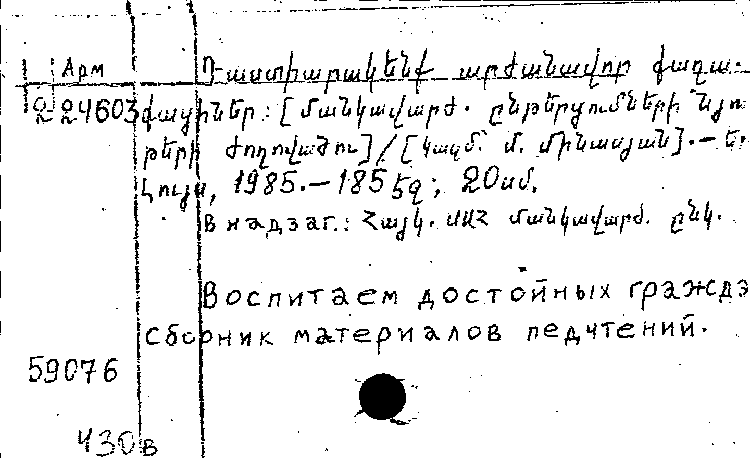 Арм Դաստիարակենք արժանավոր քաղա-
2 24603 քացիներ: [Մանկավարժ. ընթերցումների նյու
թերի ժողովածու] / [Կազմ՝ Մ. Մինասյան]. — Ե.
Լույս, 1985. — 185 էջ; 20սմ.
В надзаг.: Հայկ. ՍՍՀ մանկավարժ. ընկ.
Воспитаем достойных гражда
Сборник материалов педчтений.
59076
430 в